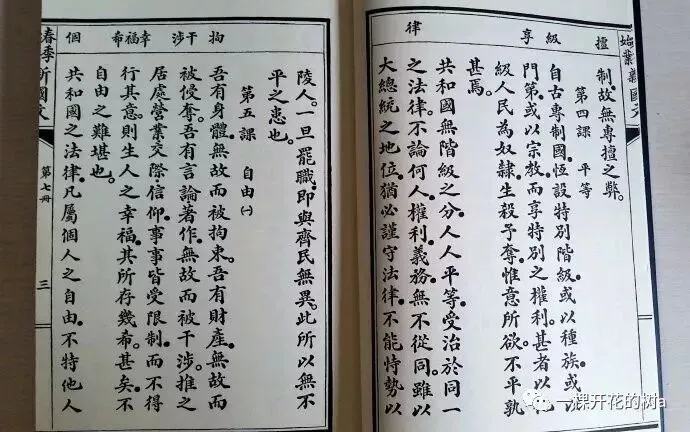 始業新國文
擅
級
享
律
制。故無專擅之弊。
第四課 平等
自古專制國。恆設特別階級。或以種族。或以
門第。或以宗教而享特別之權利。甚者以他
級人民為奴隸生殺予奪。惟意所欲。不平孰
甚焉。
共和國無階級之分。人人平等。受治於同一
之法律。不論何人。權利義務。無不從同。雖以
大總統之地位。猶必謹守法律。不能恃勢以
拘
干涉
幸福希
個
陵人。一旦罷職。即與齊民無異。此所以無不
平之患也。
第五課 自由㈠
吾有身體。無故而被拘束。吾有財產。無故而
被侵奪。吾有言論著作。無故而被干涉。推之
居處營業交際信仰。事事皆受限制。而不得
行其意。則生人之幸福。其所存幾希。甚矣不
自由之難堪也。
共和國之法律。凡屬個人之自由。不特他人
春季新國文
第七冊
三
一棵开花的树a